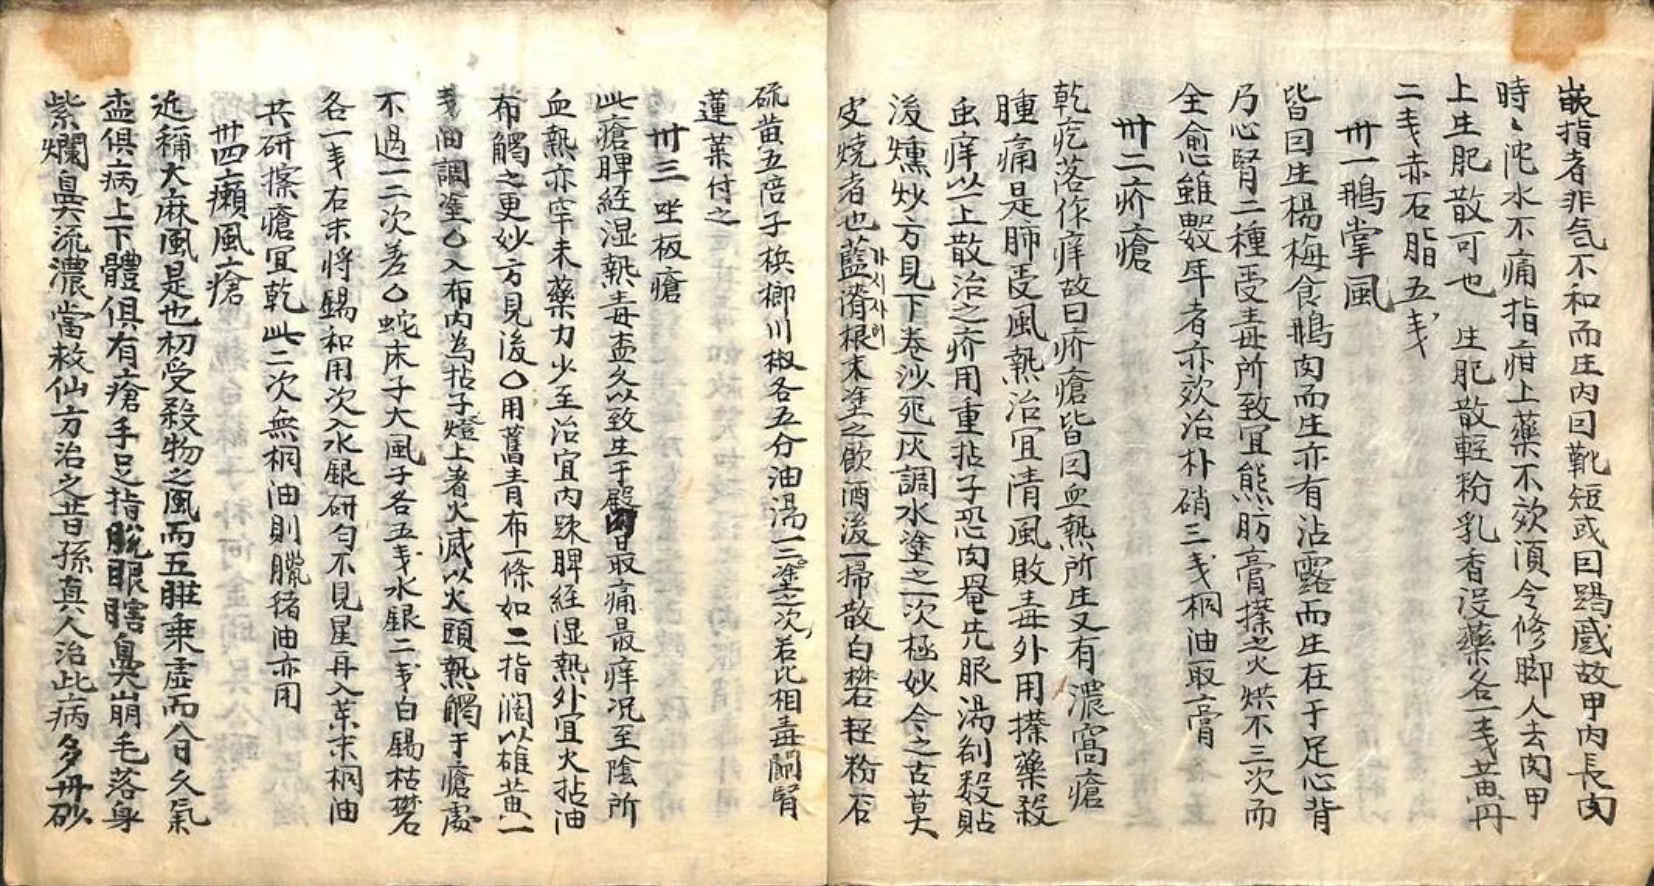 嵌指者非气不和而生内曰靴短或曰踢蹙故甲内長肉
時〻沱水不痛指疳上藥不效須令修脚人去肉甲
上生肥散可也 生肥散輕粉乳香没藥各一戋黄丹
二戋赤石脂五戋
卅一鵝掌風
皆曰生楊梅食鵝肉而生亦有沾露而生在于足心背
乃心腎二種受毒所致宜熊肪膏搽之火烘不三次而
全愈雖數年者亦效治朴硝三戋桐油取膏
卅二疥瘡
乾疙落作痒故曰疥瘡皆曰血熱所生又有濃窩瘡
腫痛是肺受風熱治宜清風敗毒外用搽藥殺
虫痒以上散治之疥用重拈子恐肉罨先服湯劑毅貼
後燻炒方見下卷沙死灰調水塗之一次極妙今之古莫
皮燒者也藍漬根末塗之飲酒後一掃散白礬軽粉石
硫黄五陪子梹榔川椒各五分油湯二三塗之次若比相毒闘腎
蓮葉付之
卅三坐板瘡
此瘡脾経湿熱毒盍久以致生于殿肉最痛最痒况至陰所
血熱亦罕未藥力少至治宜内踈脾経湿熱外宜火拈油
布觸之更妙方見後〇用舊青布一條如二指濶以雄黄一
戋油調塗〇入布内為拈子燈上著火滅以火頭熱觸于瘡處
不過一二次差〇蛇床子大風子各五戋水銀二戋白錫枯礬
各一戋右末将錫和用次入水銀研匀不見星再入菜末桐油
共研搽瘡宜乾此二次無桐油則臘猪油亦用
卅四癩風瘡
近稱大麻風是也初受殺物之風而五臟乗虚而八日久氣
盍俱病上下體俱有瘡手足指脱眼瞎鼻崩毛落身
紫爛鼻流濃當救仙方治之昔孫真人治此病多丹砂